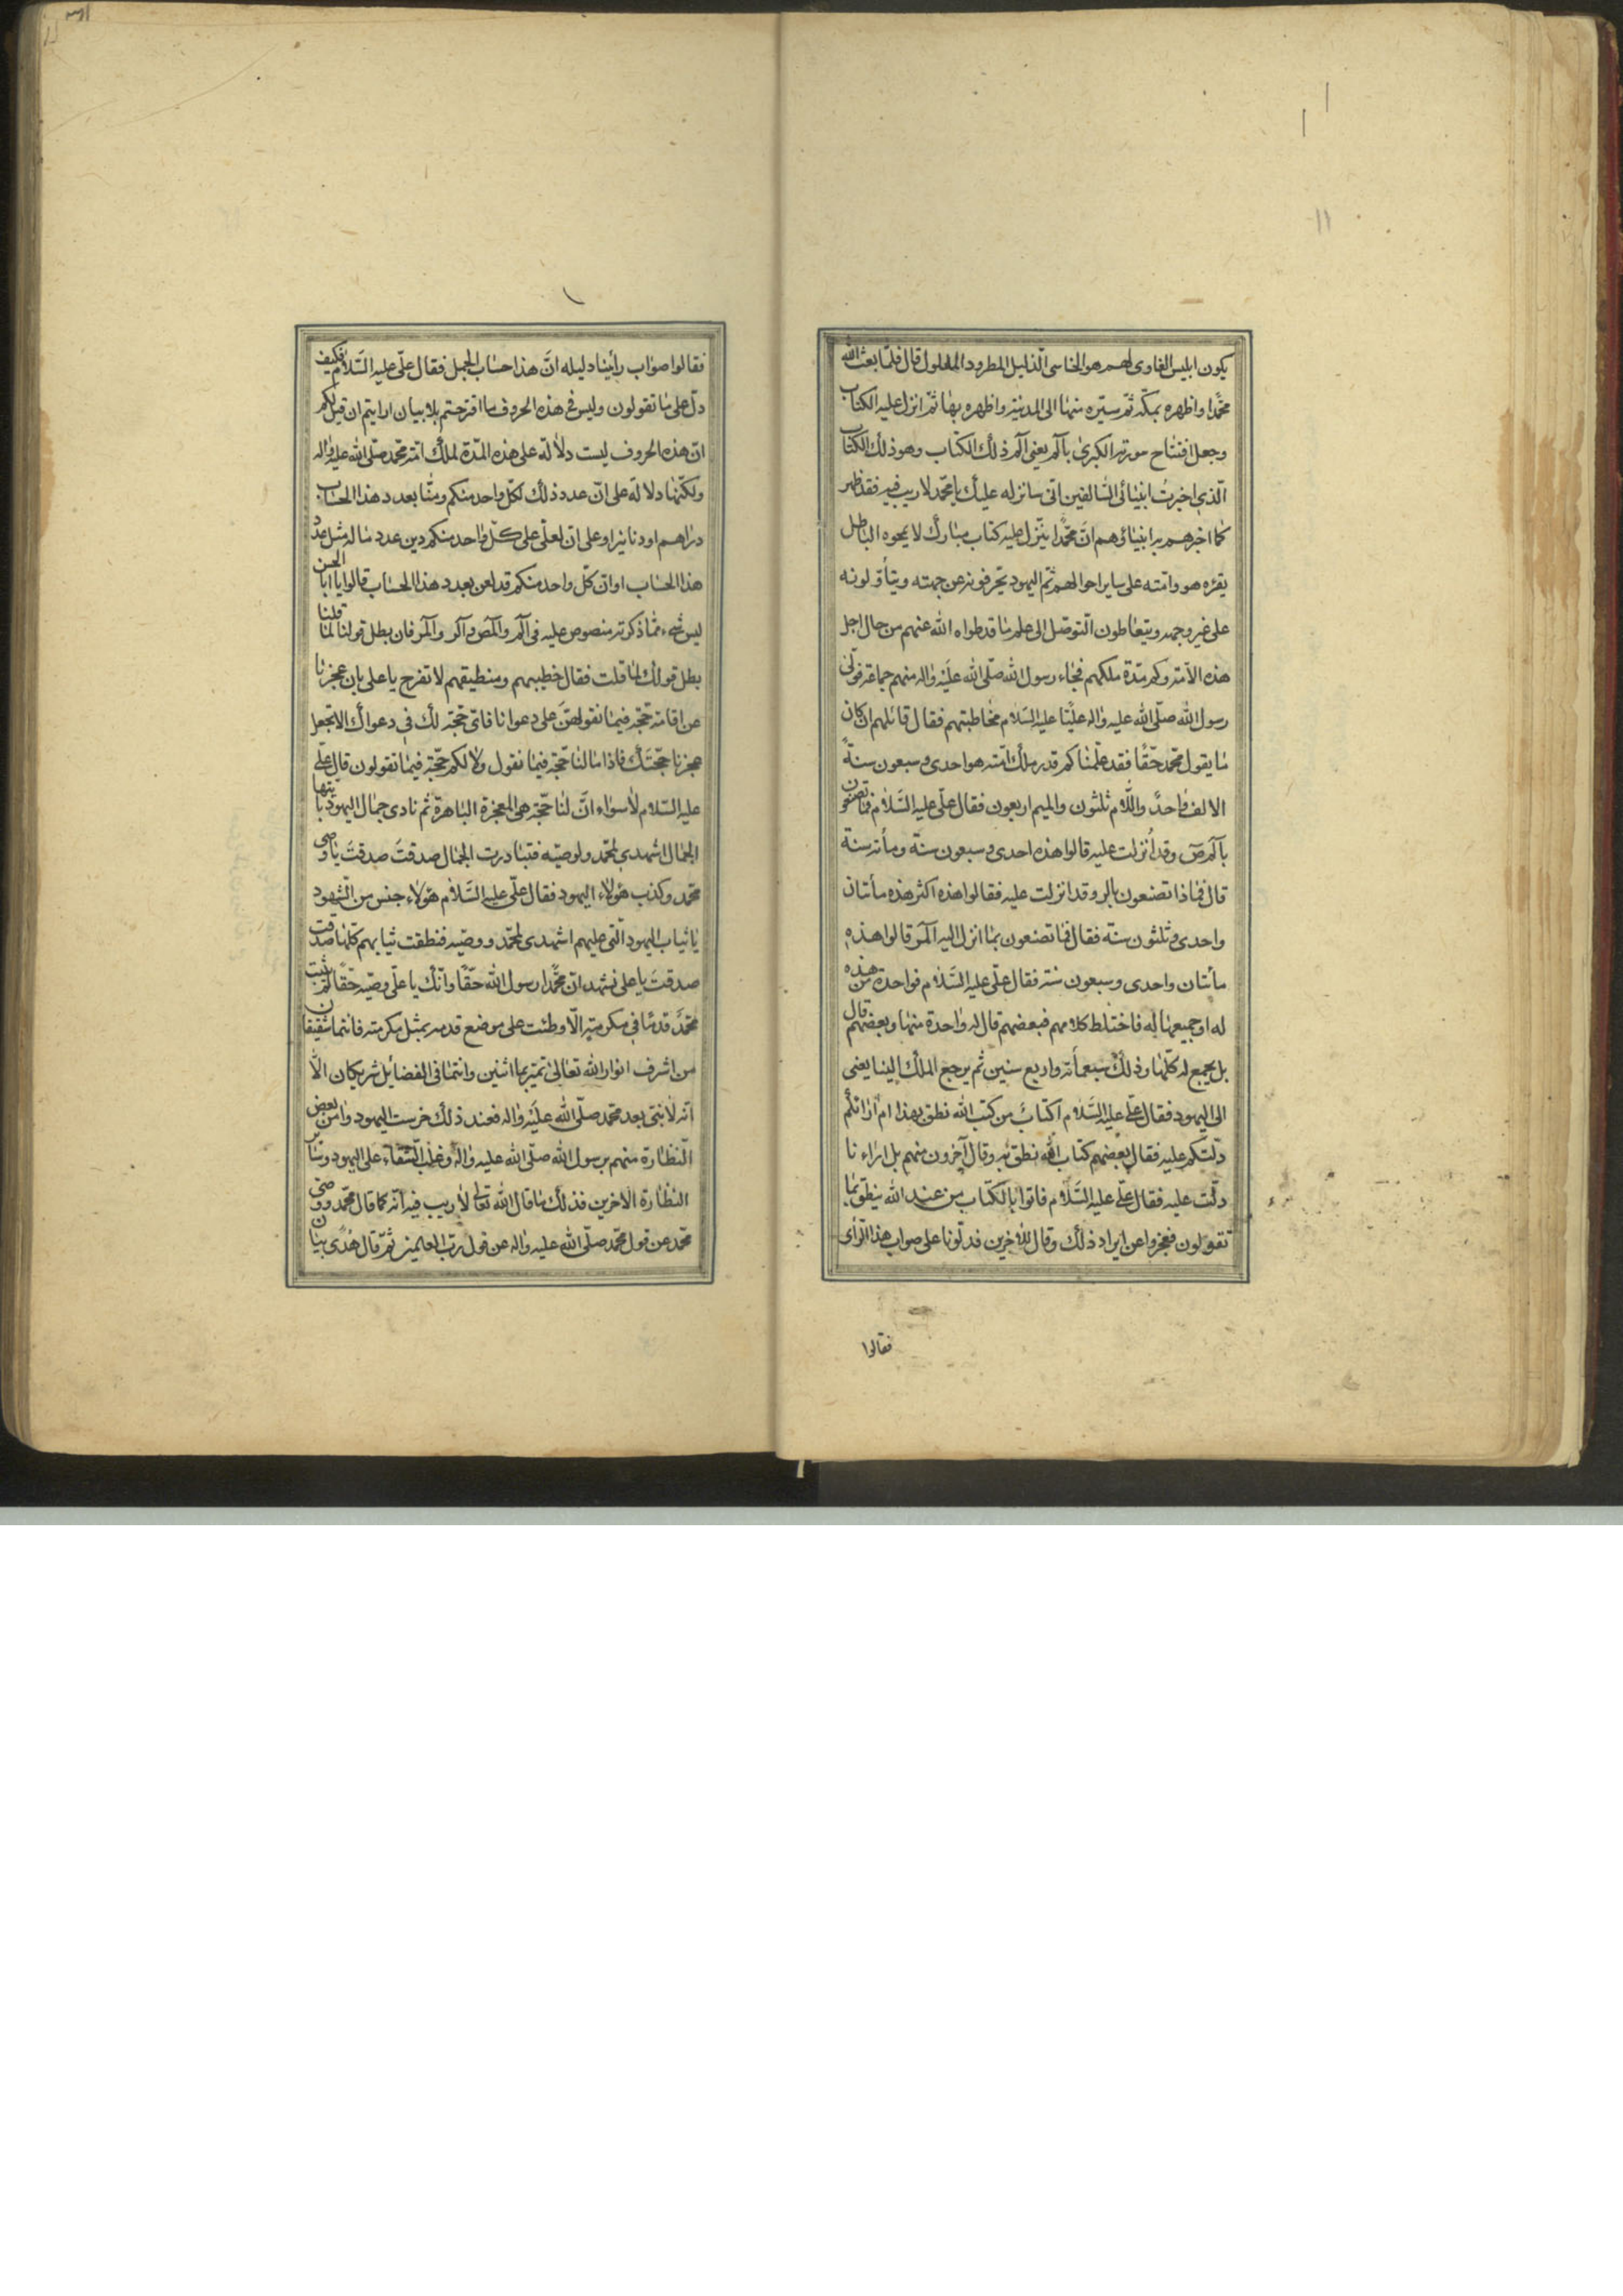 يكون ابليس الغاوى لهم هو الخاسئ الذليل المطرود المغلول قال فلمّا بعث الله
محمّدا واظهره بمكّه ثمّ سيّره منها الى المدينة واظهره بها ثمّ انزل عليه الكتاب
وجعل افتتاح سورته الكبرى بآلم يعنى آلم ذلك الكتاب وهو ذلك الكتاب
الّذى اخبرتُ انبيائى السّالفين انّى سانزله عليك يا محمّد لا ريب فيه فقد ظهر
كما اخبرهم به انبيائهم انّ محمّدا ينزّل عليه كتاب مبارك لا يمحوه الباطل
يقرءه هو وامّته على ساير احوالهم ثمّ اليهود يحرّفونه عن جهته ويتأوّلونه
على غير وجهه ويتعاطون التّوصّل الى علم ما قد طواه الله عنهم من حال اجل
هذه الامّة وكم مدّة ملكهم فجاء رسول الله صلّى الله عليه واله منهم جماعة فولّى
رسول الله صلّى الله عليه واله عليّا عليه السّلام مخاطبتهم فقال قائلهم ان كان
ما يقول محمّد حقّا فقد علّمناكم قدر ملك امّته هو احدى وسبعون سنة
الالف واحدٌ واللّام ثلثون والميم اربعون فقال علّى عليه السّلام فما تصنعون
بآلمص وقد اُنزلت عليه قالوا هذه احدى وسبعون سنة ومأته سنة
قال فما ذا تصنعون بالر وقد انزلت عليه فقالوا هذه اكثر هذه مأتان
واحدى وثلثون سنّه فقال فما تصنعون بما انزل اليه آلمر قالوا هذه
مأتان واحدى وسبعون سنة فقال علّى عليه السّلام فواحدة من هذه
له او جميعها له فاختلط كلامهم فبعضهم قال له واحدة منها وبعضهم قال
بل يجمع له كلّها وذلك سبعمأته واربع سنين ثم يرجع الملك الينا يعنى
الى اليهود فقال علّى عليه السّلام اكتابٌ من كتب الله نطق بهذا ام اراؤكم
دلّتكم عليه فقال بعضهم كتاب الله نطق به وقال آخرون منهم بل اراءنا
دلّت عليه فقال علّى عليه السّلام فاتوا بالكتاب من عند الله ينطق بما
تقولون فعجزوا عن ايراد ذلك وقال للاخرين فدلّونا على صواب هذا الرّأى
فقالوا
فقالوا صواب رأينا دليله انّ هذا حساب الجمل فقال علّى عليه السّلام فكيف
دلّ على ما تقولون وليس فى هذه الحروف ما اقترحتم بلا بيان ارايتم ان قيل لكم
انّ هذه الحروف ليست دلالة على هذه المدّة لملك امّة محمّد صلّى الله عليه واله
ولكنّها دلالة على انّ عدد ذلك لكلّ واحد منكم ومنّا بعدد هذا الحساب
دراهم او دنانير او على انّ لعلّى على كلّ واحد منكم دين عدد ماله مثل عدد
هذا الحساب او انّ كلّ واحد منكم قد لعن بعدد هذا الحساب قالوا يا ابا الحسن
ليس شىء ممّا ذكرته منصوص عليه فى آلم وآلمص وآلر وآلمر فان بطل قولنا لما قلنا
بطل قولك لما قلت فقال خطيبهم ومنطيقهم لا تفرح يا على بان عجزنا
عن اقامة حجّة فيما نقولهنّ على دعوانا فاىّ حجّة لك فى دعواك الا تجعل
عجزنا حجّتك فاذا مالنا حجّة فيما نقول ولا لكم حجّة فيما تقولون قال علّى
عليه السّلام لا سواء انّ لنا حجّة هى المعجزة الباهرة ثم نادى جمال اليهود يا ايتها
الجمال اشهدى لمحمّد ولوصيّه فتبادرت الجمال صدقت صدقت يا وصى
محمّد وكذب هؤلاء اليهود فقال علّى عليه السّلام هؤلاء جنس من الشهود
يا ثياب اليهود الّتى عليهم اشهدى لمحمّد ووصيّه فنطقت ثيابهم كلّها صدقت
صدقت يا على نشهد انّ محمّدا رسول الله حقّا وانّك يا علّى وصيّه حقّا لم يثبت
محمّد قدما فى مكرمته الّا وطئت على موضع قدمه بمثل مكرمته فانتما شقيقان
من اشرف انوار الله تعالى تميّزتما اثنين وانتما فى الفضايل شريكان الّا
انّه لا نبىّ بعد محمّد صلّى الله عليه واله فعند ذلك خرست اليهود وامن بعض
النّظارة منهم برسول الله صلّى الله عليه واله وغلب الشقاء على اليهود وساير
النظارة الاخرين فذلك ما قال الله تعالى لا ريب فيه انّه كما قال محمّد ووصى
محمّد عن قول محمّد صلّى الله عليه واله عن قول ربّ العلمين ثمّ قال هُدًى بيان